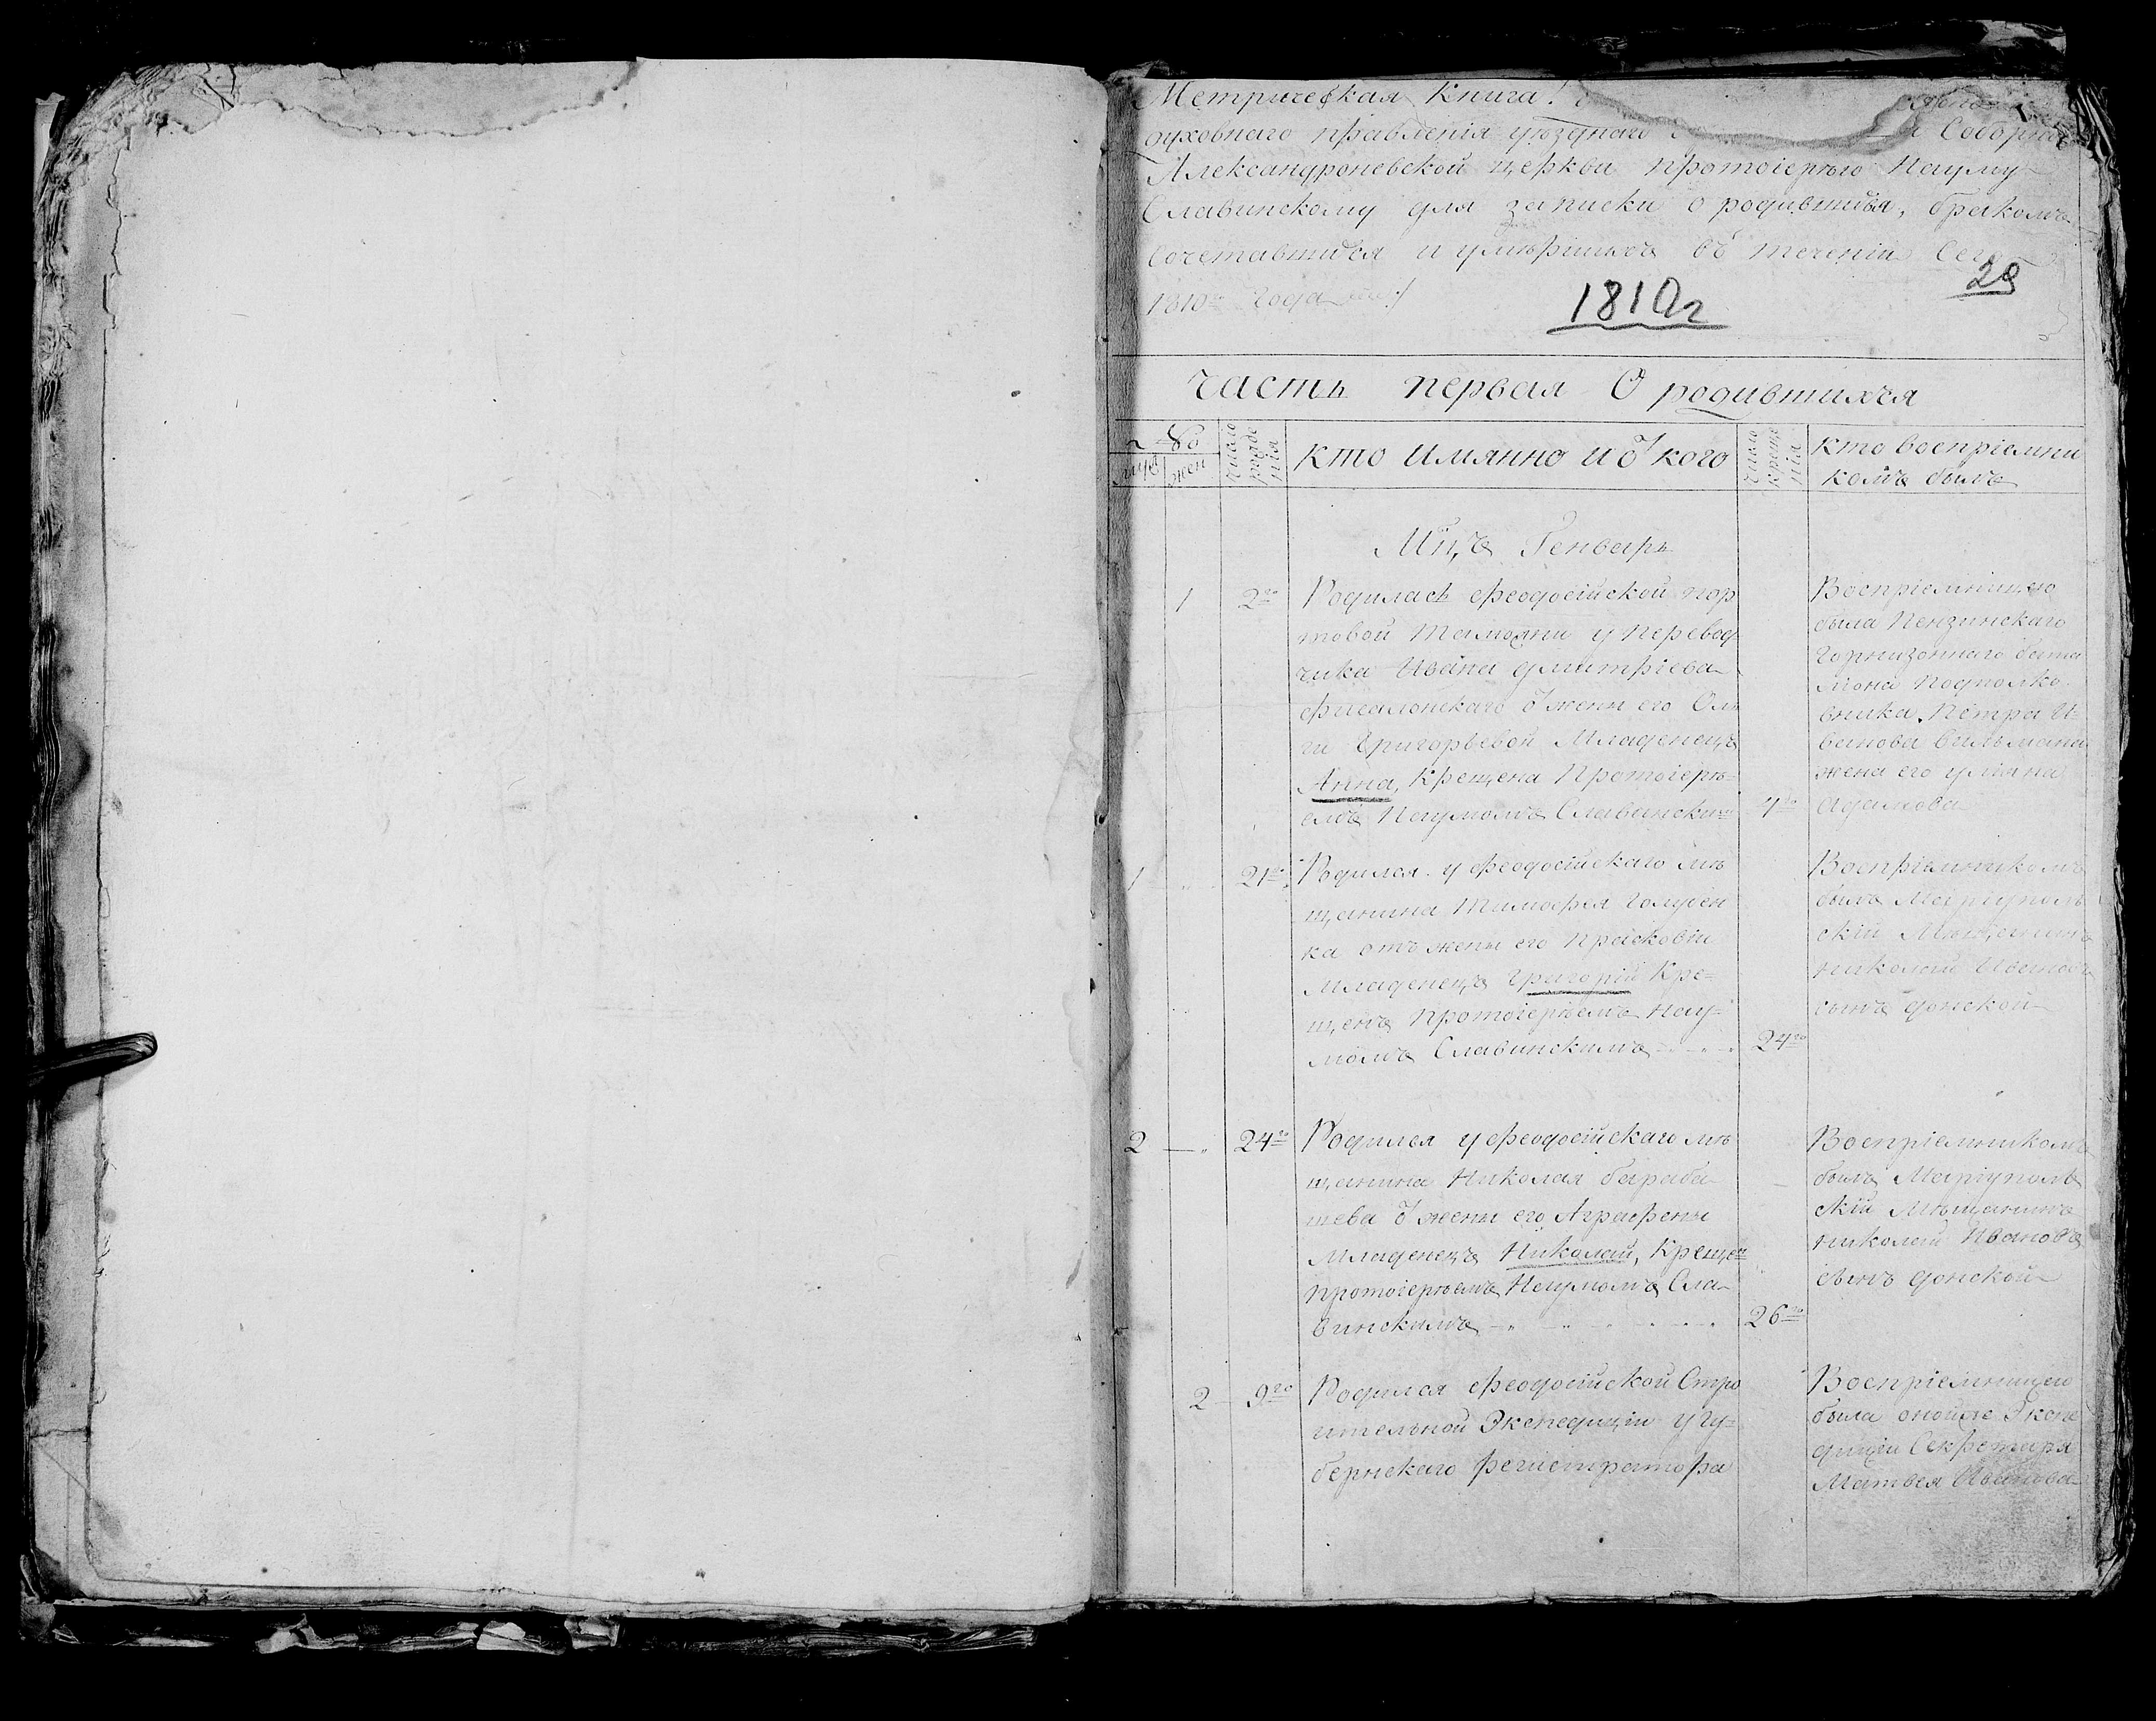 Метрическая книга
духовнаго правленія уѣзднаго Соборной
Александроневской церкви протоіерѣю Науму
Славинскому для записки о родившихся, бракомъ
сочетавшихся и умѣршихъ въ теченіи сего
1810го года
1810 г
29
часть первая О родившихся
№
муж
жен
число рожденія
кто имянно и от кого
число крещенія
кто воспріемни
комъ былъ
Мцъ Генварь
1
2го
Родилась феодосійской пор
товой таможни у перевод
чика Ивана дмитріева
от жены его Оль
ги Григорьевой Младенецъ
Анна, крещена Протоіерѣ=
емъ Наумомъ Славинским
4го
Воспріемницею
была Пензинскаго
Горнизоннаго бата
ліона подполко
вника Петра И=
ванова
жена его улияна
Адамова
1
21го
Родился у феодосійскаго мѣ
щанина Тимофея Голубен
ка отъ жены его прасковіи
Младенецъ Григорій Кре=
щенъ протоіерѣемъ Нау=
момъ Славинскимъ
24го
Воспріемникомъ
былъ Маріуполь
скій Мѣщанинъ
николай Ивановъ
сынъ донской
2
24го
Родился у феодосійскаго мѣ
щанина Николая бараба
шева от жены его Аграфены
Младенецъ Николай, Крещен
протоіерѣемъ Наумомъ Сла
винскимъ
26го
Воспріемникомъ
былъ Маріуполь
скій Мѣщанинъ
николай Ивановъ
сынъ донской
2
9го
Родился феодосійской Стро
ительной Экспедиціи у гу=
бернскаго регистратора
Воспріемницею
была оной же Экспе
диціи Секретаря
Матвея Иванова